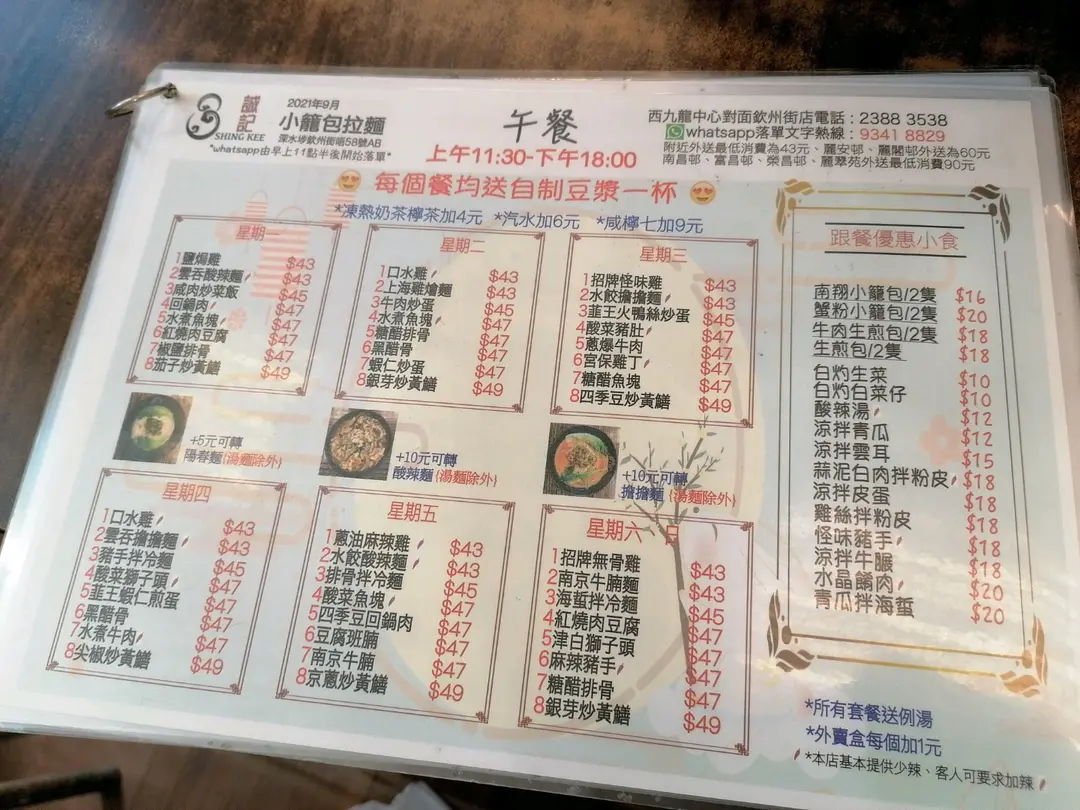 誠記
SHING KEE
2021年9月
小籠包拉麵
深水埗欽州街唔58號AB
*whatsapp由早上11點半後開始落單*
午餐
上午11:30-下午18:00
西九龍中心對面欽州街店電話：2388 3538
whatsapp落單文字熱線：9341 8829
附近外送最低消費為43元、麗安邨、麗閣邨外送為60元
南昌邨、富昌邨、榮昌邨、麗翠苑外送最低消費90元
每個餐均送自制豆漿一杯
*凍熱奶茶檸茶加4元 *汽水加6元 *咸檸七加9元
星期一
1鹽焗雞 $43
2雲吞酸辣麵 $43
3咸肉炒菜飯 $45
4回鍋肉 $47
5水煮魚塊 $47
6紅燒肉豆腐 $47
7椒鹽排骨 $47
8茄子炒黃鱔 $49
星期二
1口水雞 $43
2上海雞燴麵 $43
3牛肉炒蛋 $45
4水煮魚塊 $47
5糖醋排骨 $47
6黑醋骨 $47
7蝦仁炒蛋 $47
8銀芽炒黃鱔 $49
星期三
1招牌怪味雞 $43
2水餃擔擔麵 $43
3韮王火鴨絲炒蛋 $45
4酸菜豬肚 $47
5蔥爆牛肉 $47
6宮保雞丁 $47
7糖醋魚塊 $47
8四季豆炒黃鱔 $49
+5元可轉
陽春麵(湯麵除外)
+10元可轉
酸辣麵(湯麵除外)
+10元可轉
擔擔麵(湯麵除外)
星期四
1口水雞 $43
2雲吞擔擔麵 $43
3豬手拌冷麵 $45
4酸菜獅子頭 $47
5韮王蝦仁煎蛋 $47
6黑醋骨 $47
7水煮牛肉 $47
8尖椒炒黃鱔 $49
星期五
1蔥油麻辣雞 $43
2水餃酸辣麵 $43
3排骨拌冷麵 $45
4酸菜魚塊 $47
5四季豆回鍋肉 $47
6豆腐班腩 $47
7南京牛腩 $47
8京蔥炒黃鱔 $49
星期六 日
1招牌無骨雞 $43
2南京牛腩麵 $43
3海蜇拌冷麵 $45
4紅燒肉豆腐 $47
5津白獅子頭 $47
6麻辣豬手 $47
7糖醋排骨 $47
8銀芽炒黃鱔 $49
跟餐優惠小食
南翔小籠包/2隻 $16
蟹粉小籠包/2隻 $20
牛肉生煎包/2隻 $18
生煎包/2隻 $18
白灼生菜 $10
白灼白菜仔 $10
酸辣湯 $12
涼拌青瓜 $12
涼拌雲耳 $15
蒜泥白肉拌粉皮 $18
涼拌皮蛋 $18
雞絲拌粉皮 $18
怪味豬手 $18
涼拌牛𦟌 $18
水晶餚肉 $20
青瓜拌海蜇 $20
*所有套餐送例湯
*外賣盒每個加1元
*本店基本提供少辣、客人可要求加辣